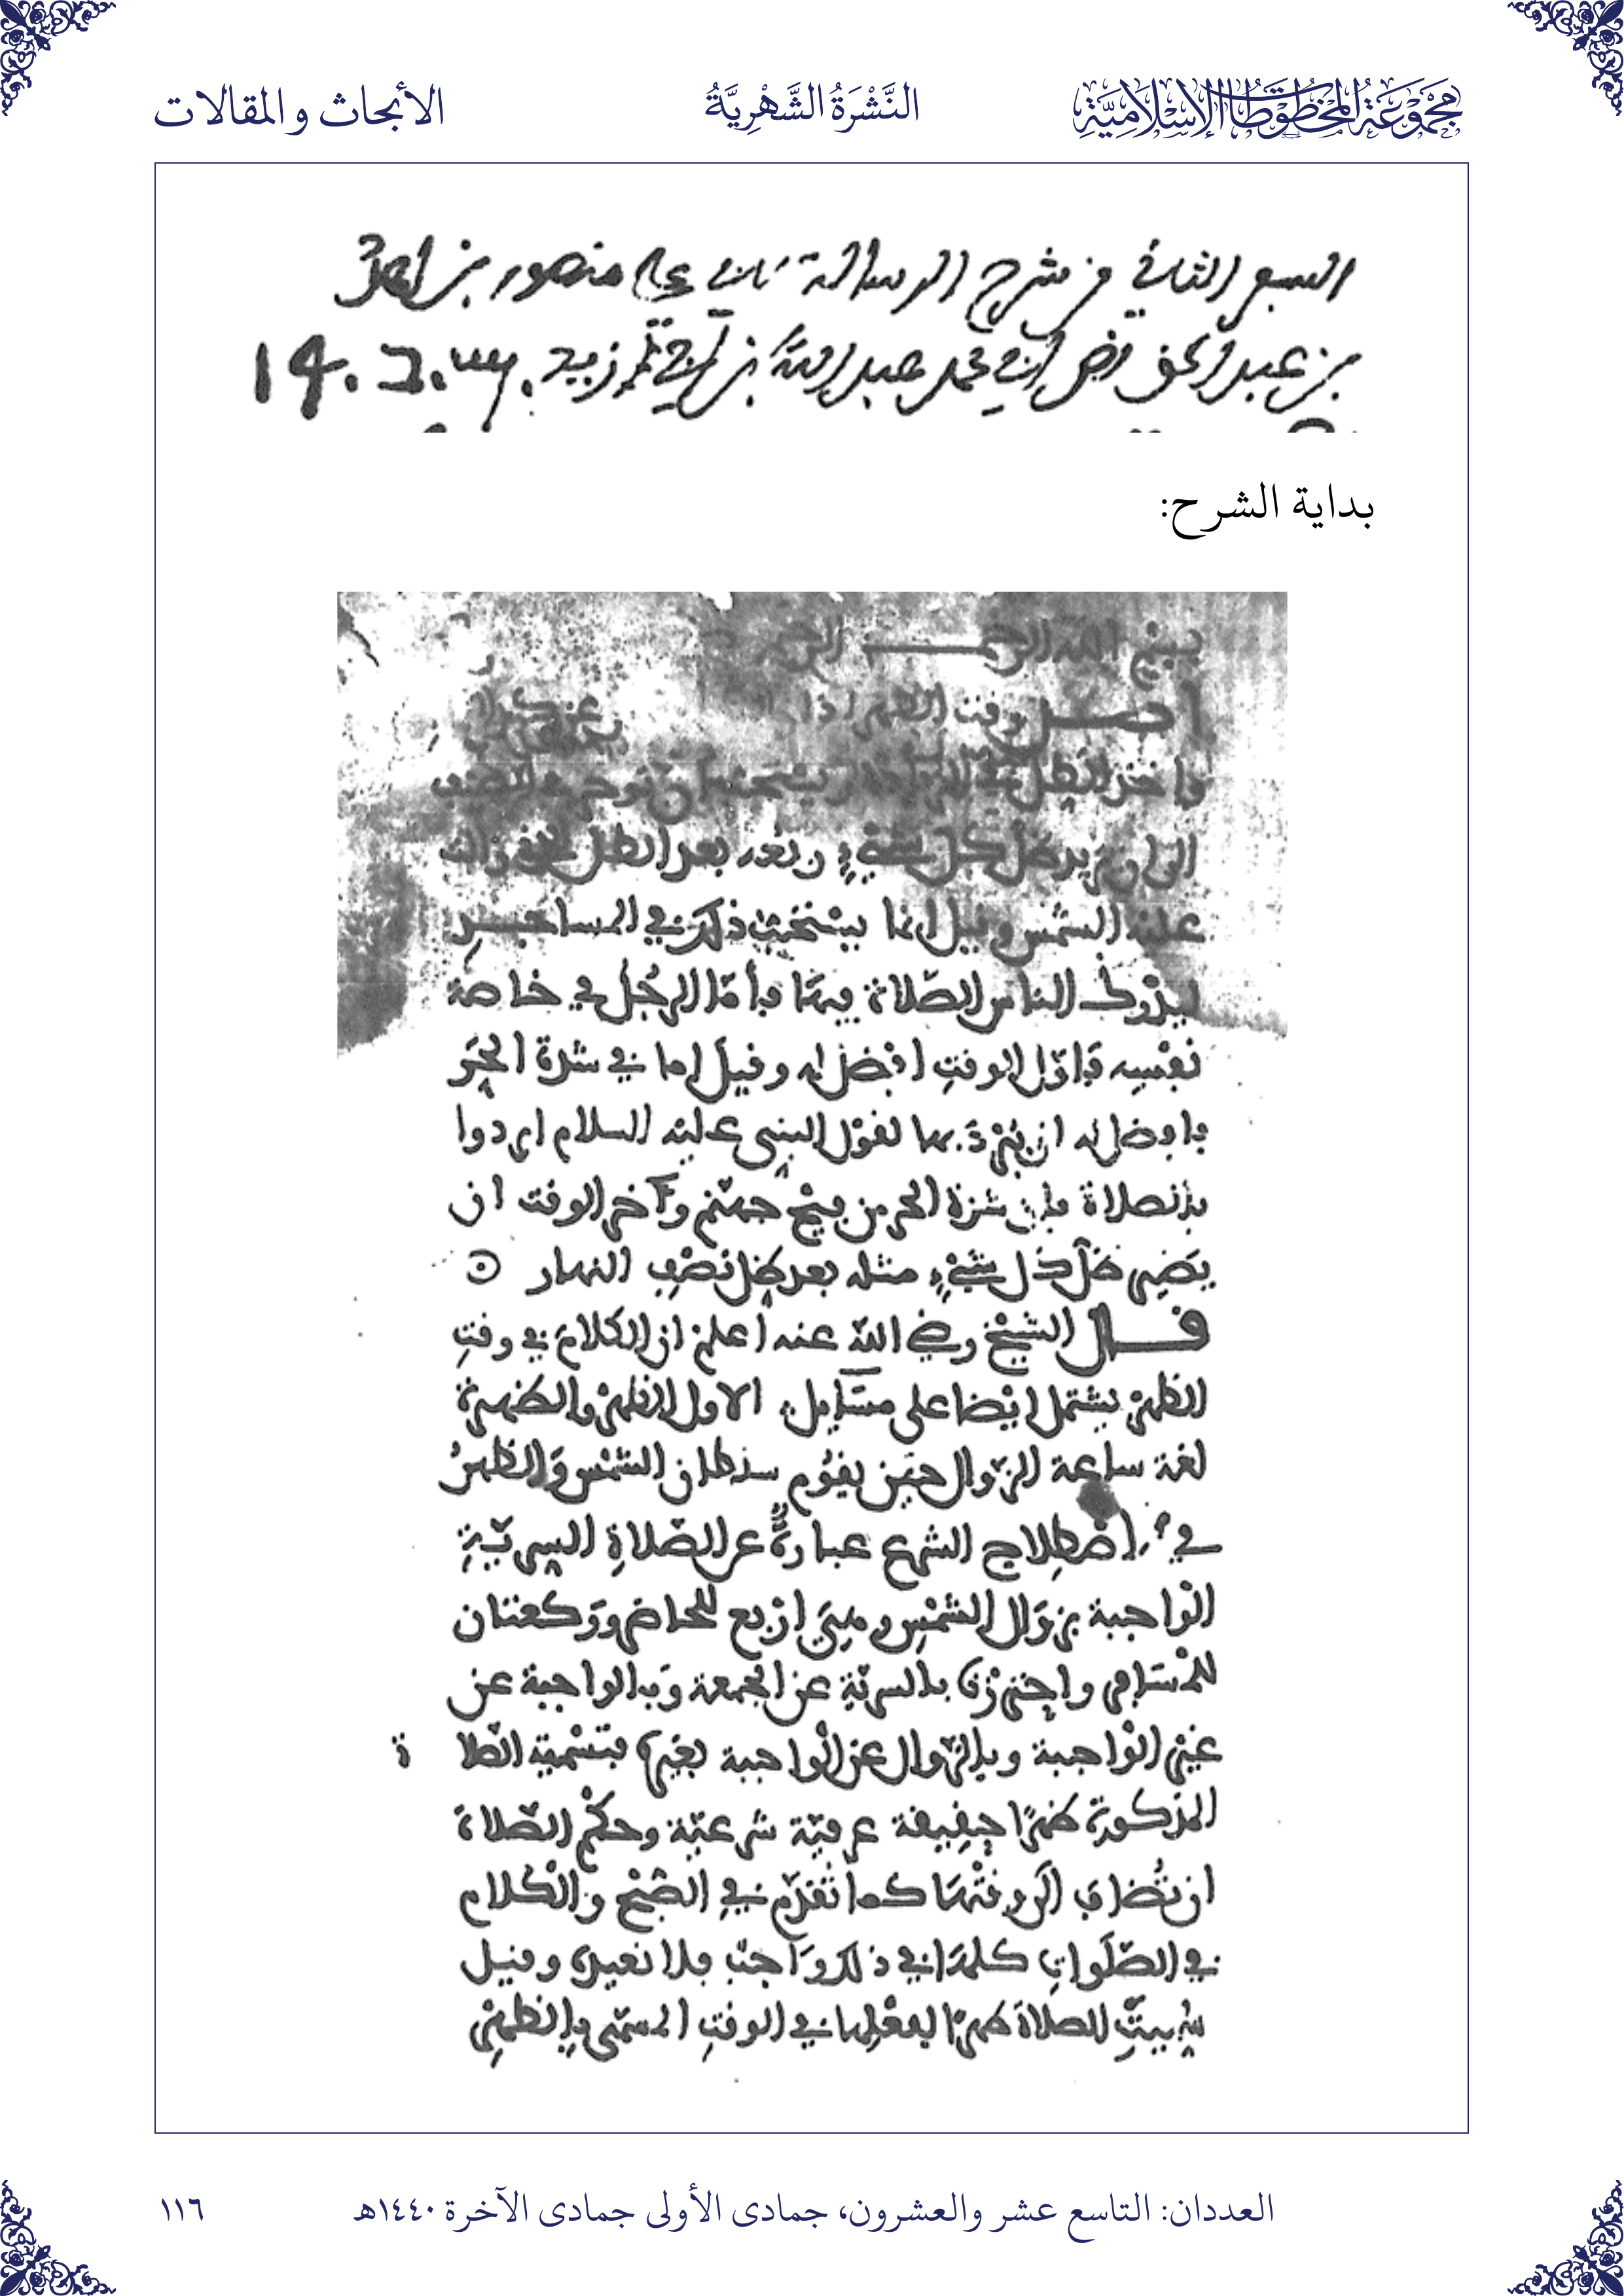 مَجْمُوْعَةُ المَخْطُوْطَاتِ الإِسْلَامِيَّةِ
النَّشْرَةُ الشَّهْرِيَّةُ
الأبحاث والمقالات
السبع الثاني من شرح الرسالة علي منصور بن أحمد
بن عبد الحق رضي محمد عبد الله بن أبي زيد
بداية الشرح:
بسم الله الرحمن الرحيم
وقت الظهر اذا
علينا الشمس وقيل انما يستحب ذلك في المساجد
ليدرك الناس الصلاة فيها وأمّا الرجُل في خاصة
نفسِه فأوّل الوقتِ افضل له وقيل اما في شدة الحَر
فافضل له ان يُبْرِدَ بها لقوْل النبي عليْه السلام ابردوا
بالصلاة فإن شدة الحر من فيْح جهنّم وآخر الوقت ان
يَصِير ظلّ كل شيْء مثله بعد ظل نصْف النهار
قال الشيْخ رضي اللّه عنه اعلمْ ان الكلامَ في وقتِ
الظهرْ يشتمل ايْضا على مسَايل الاول الظهرْ والظهيرة
لغة ساعة الزوال حين يقوُم سلطان الشمْس وَالظهرُ
في اصْطِلاح الشرع عبارةٌ عن الصّلاةِ السِريّةِ
الوْاجبة بزوَال الشمْس وهيَ ارْبع للحاضر وَركعتان
للمْسَافر واحْترزْنا بالسريّةِ عن الجمعة وَبالواجبة عن
غيْر الوْاجبة وبالزّوال عن الوْاجبة بغيْره فتسْمية الصّلاة
المذكورة ظهرًا حقِيقة عرفيّة شرعيّة وحكْم الصّلاة
ان تُضاف الى وقتْهَا كما تقدّم في الصّبْح والْكلام
في الصّلَواتِ كلهَا في ذلك وَاحِدٌ فلا نعيده وقيل
سُميتْ الصلاة ظهرًا لفعْلها في الوقتِ المسمّى بالظهْر
العددان: التاسع عشر والعشرون، جمادى الأولى جمادى الآخرة ١٤٤٠هـ
١١٦